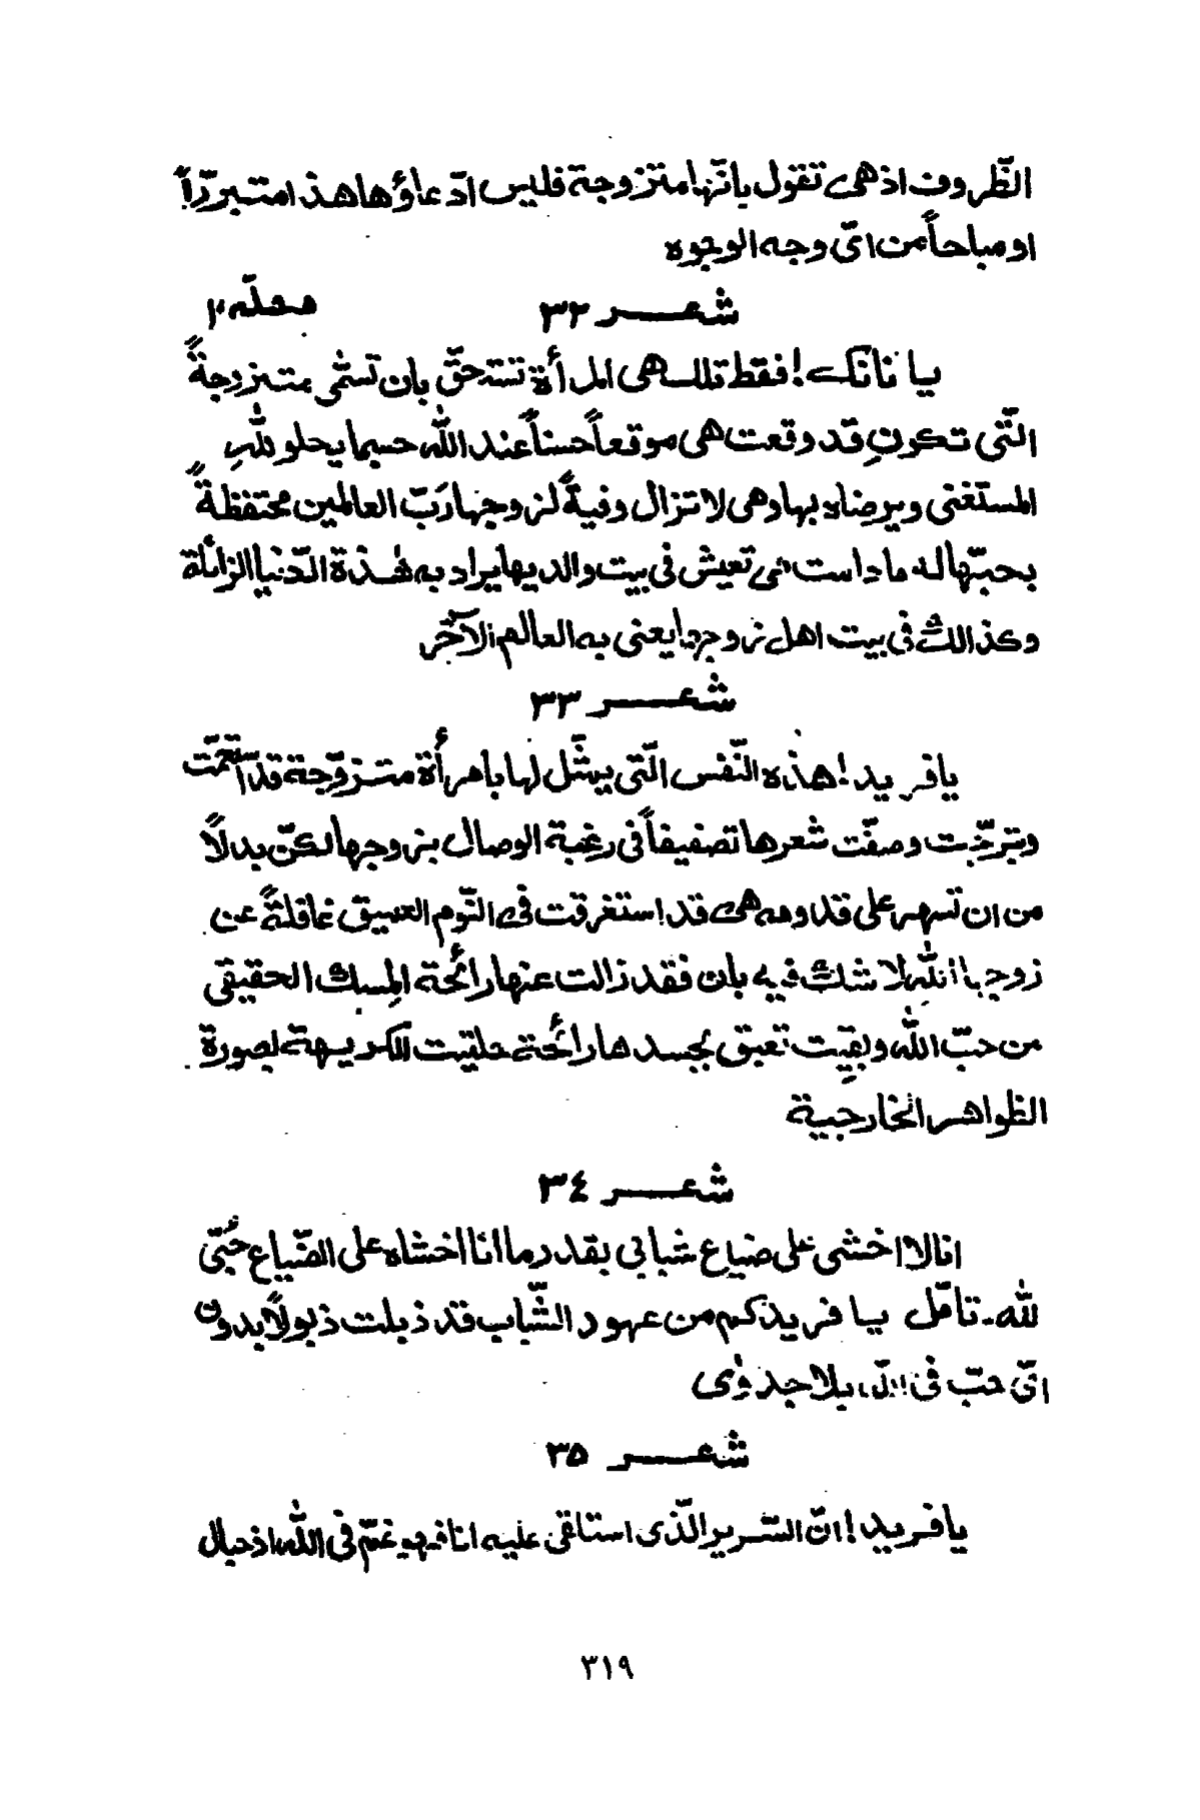 الظّروف اذ هى تقول بانّها متزوجة فليس ادّعاؤها هذا متبررّاً
او مباحاً من اىّ وجه الوجوه
شعر ٣٢ محلّه ٣
يا نانك! فقط تلك هى المرأة تستحقّ بان تسمّى متزوجةً
الّتى تكون قد وقعت هى موقعاً حسناً عند اللّٰه حسبما يحلو للّٰهِ
المستغنى ويرضاه بها وهى لا تزال وفيةً لزوجها رَبّ العالمين محتفظةً
بحبّها له ماداست هى تعيش فى بيت والديها يراد به هٰذة الدّنيا الزائلة
وكذالك فى بيت اهل زوجها يعنى به العالم الآخر
شعر ٣٣
يا فريد! هذه النّفس الّتى يمثّل لها بامرأة متزوّجة قد استحمّت
وتبرّجت وصفّت شعرها تصفيفاً فى رغبة الوصال بزوجها لكنّ بدلاً
من ان تسهر على قدومه هى قد استغرقت فى النّوم العميق غافلةً عن
زوجها اللّٰه لا شك فيه بان فقد زالت عنها رائحة المِسك الحقيقى
من حبّ اللّٰه وبقيت تعبق بجسدها رائحة حلتيت الكريهة بصورة
الظواهر الخارجية
شعر ٣٤
انا لا اخشى على ضياع شبابي بقدر ما انا اخشاه على الضّياع حُبّى
للّٰه۔ تامّل يا فريد كم من عهود الشّباب قد ذبلت ذبولاً بدون
اىّ حبّ فى بلا جدوٰى
شعر ٣٥
يا فريد! انّ السّرير الّذى استلقى عليه انا فهو غمّ فى اللّٰه اذ حبال
٣١٩